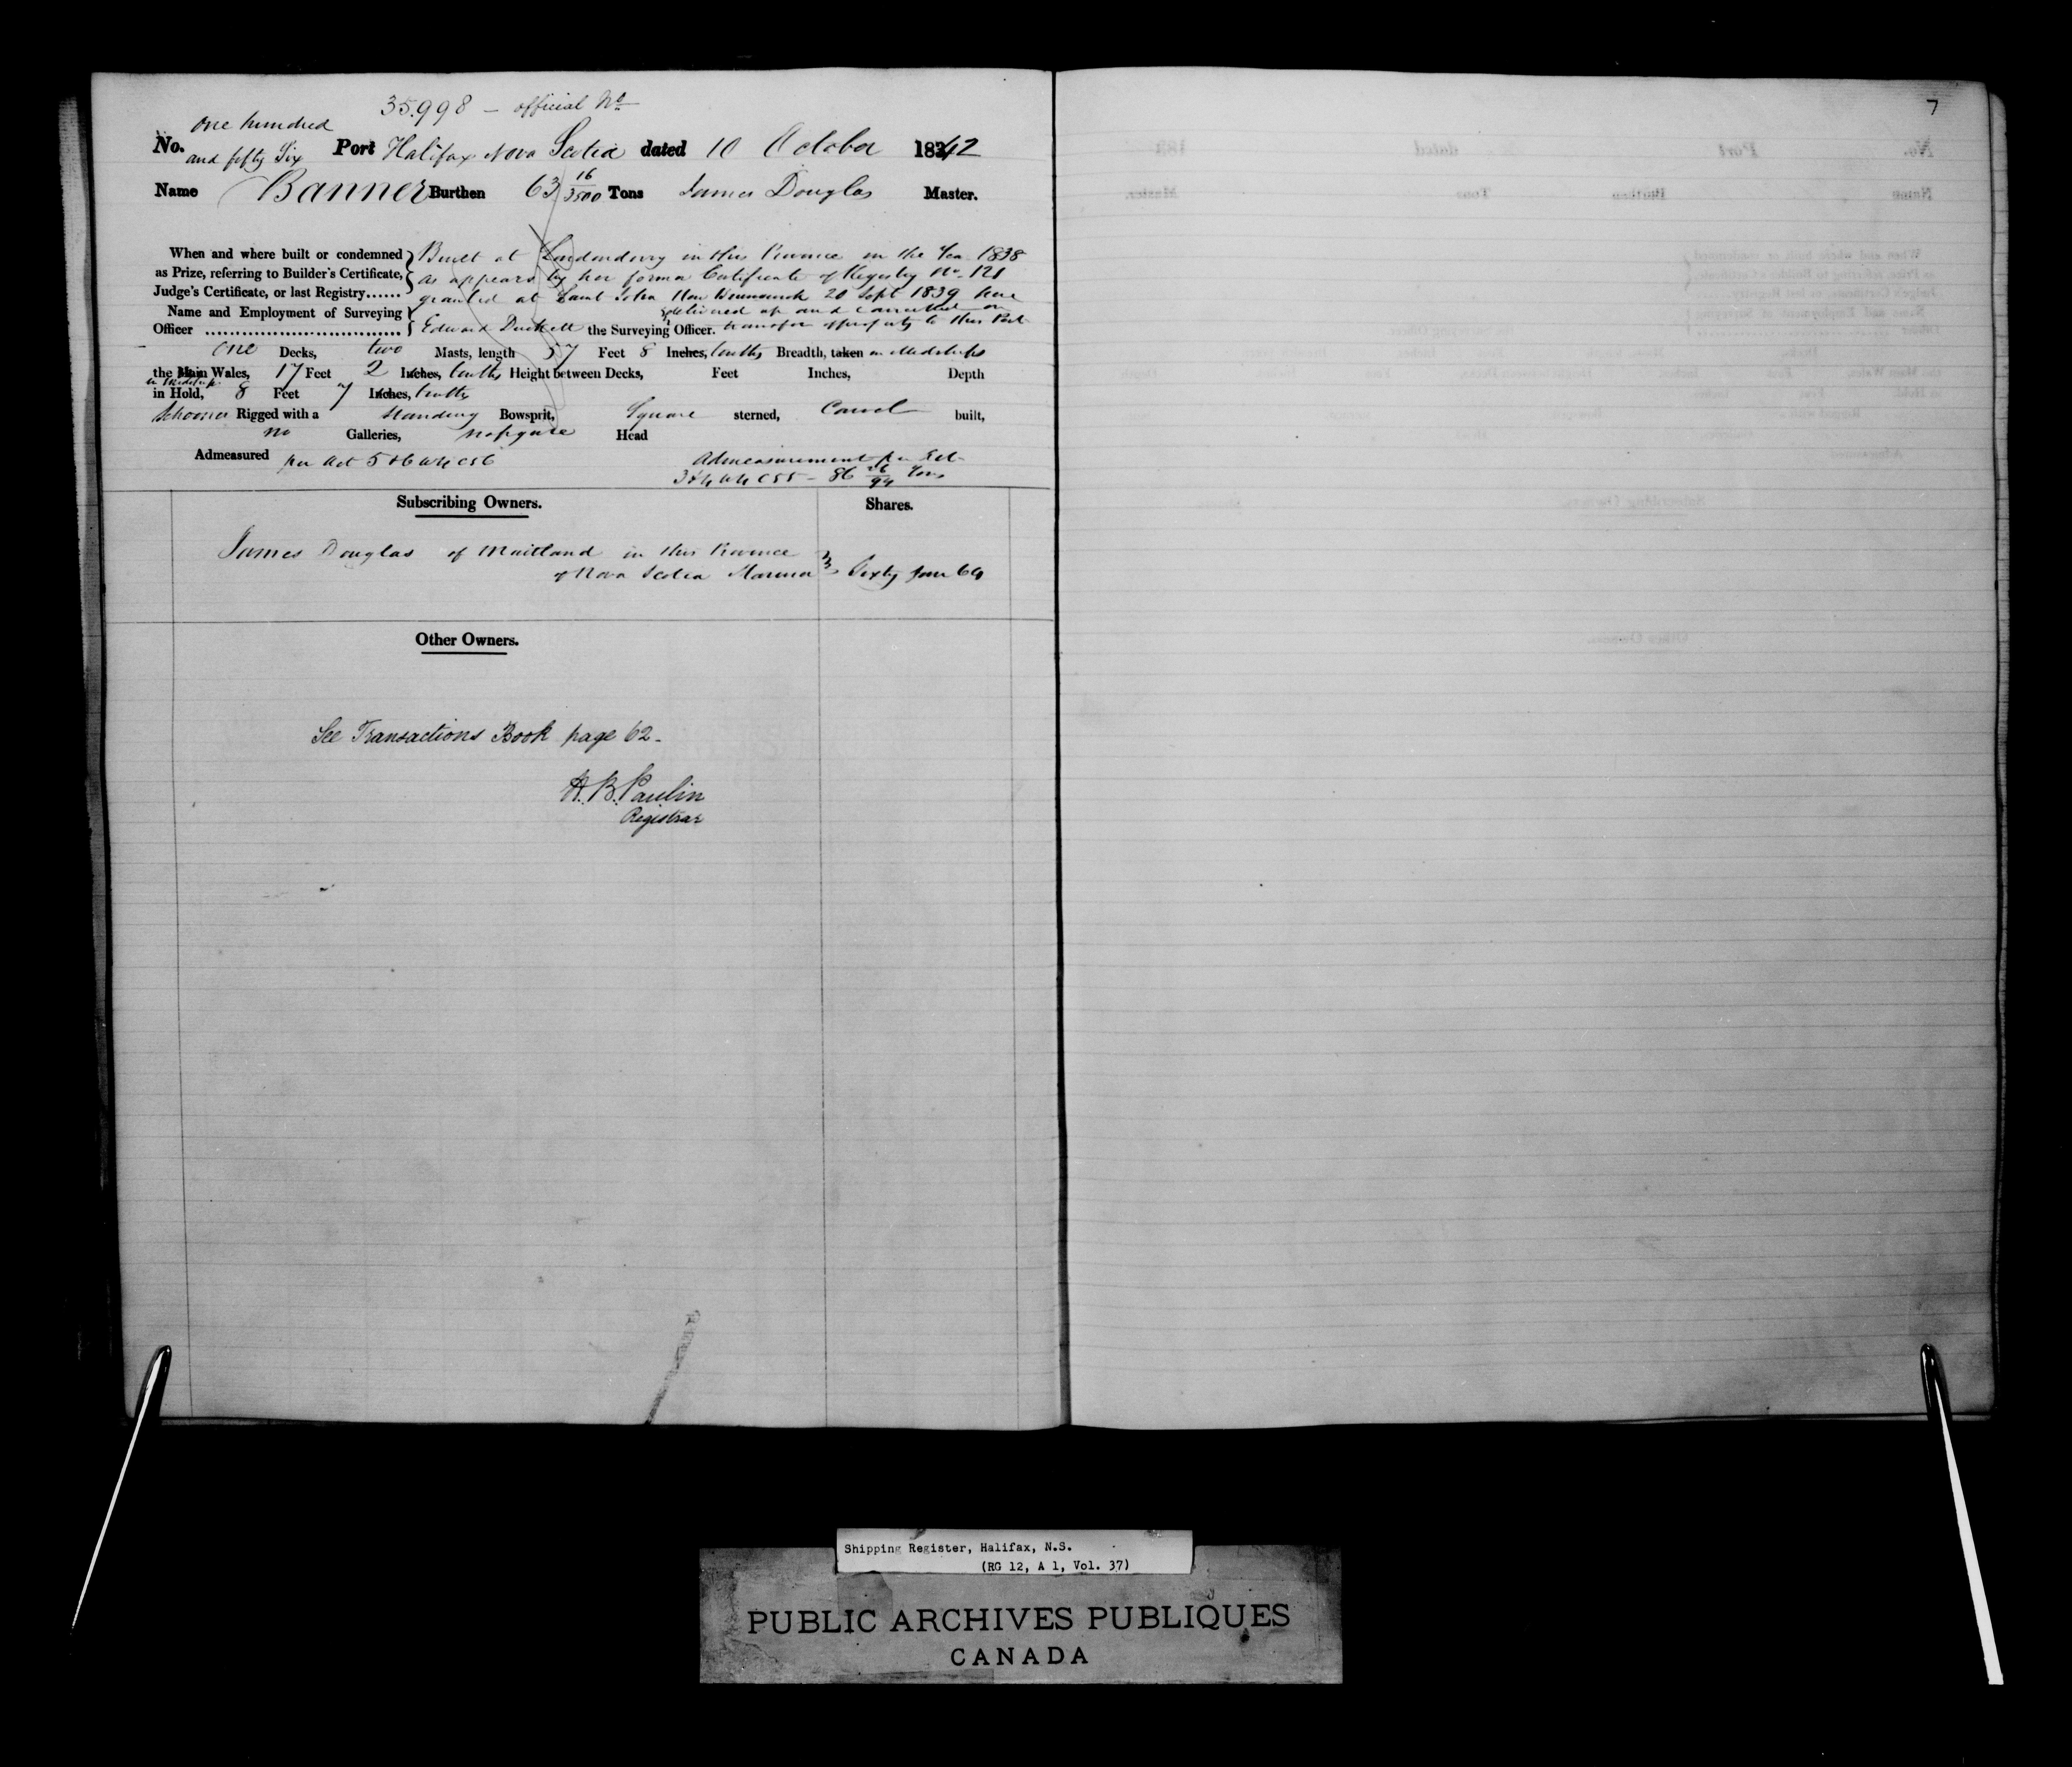 35.998 — official No
one hundred
No. and fifty Six Port Halifax Nova Scotia dated 10 October 1842
Name Banner Burthen 63 16/3500 Tons James Douglas Master.
When and where built or condemned as Prize, referring to Builder's Certificate, Judge's Certificate, or last Registry......
Built at Londonderry in this Province in the Year 1838
as appears by her former Certificate of Registry No. 121
granted at Saint John New Brunswick 20 Sept 1839 here
delivered up and cancelled on
Name and Employment of Surveying Officer ................................ Edward Duckett the Surveying Officer. transfer of property to this Port
one Decks, two Masts, length 57 Feet 8 Inches, tenths Breadth, taken in Midships
the Main Wales, 17 Feet 2 Inches, tenths Height between Decks, Feet Inches, Depth
in Midships
in Hold, 8 Feet 7 Inches, tenths
Schooner Rigged with a standing Bowsprit, Square sterned, Carvel built,
no Galleries, no figure Head
Admeasured per Act 5 & 6 W 4 C 56
Admeasurement per Act
3 & 4 W 4 C 55 — 86 26/94 Tons
Subscribing Owners. Shares.
James Douglas of Maitland in this Province
of Nova Scotia Mariner Sixty four 64
Other Owners.
See Transactions Book page 62-
H. B. Paulin
Registrar
7
Shipping Register, Halifax, N.S.
(RG 12, A 1, Vol. 37)
PUBLIC ARCHIVES PUBLIQUES
CANADA